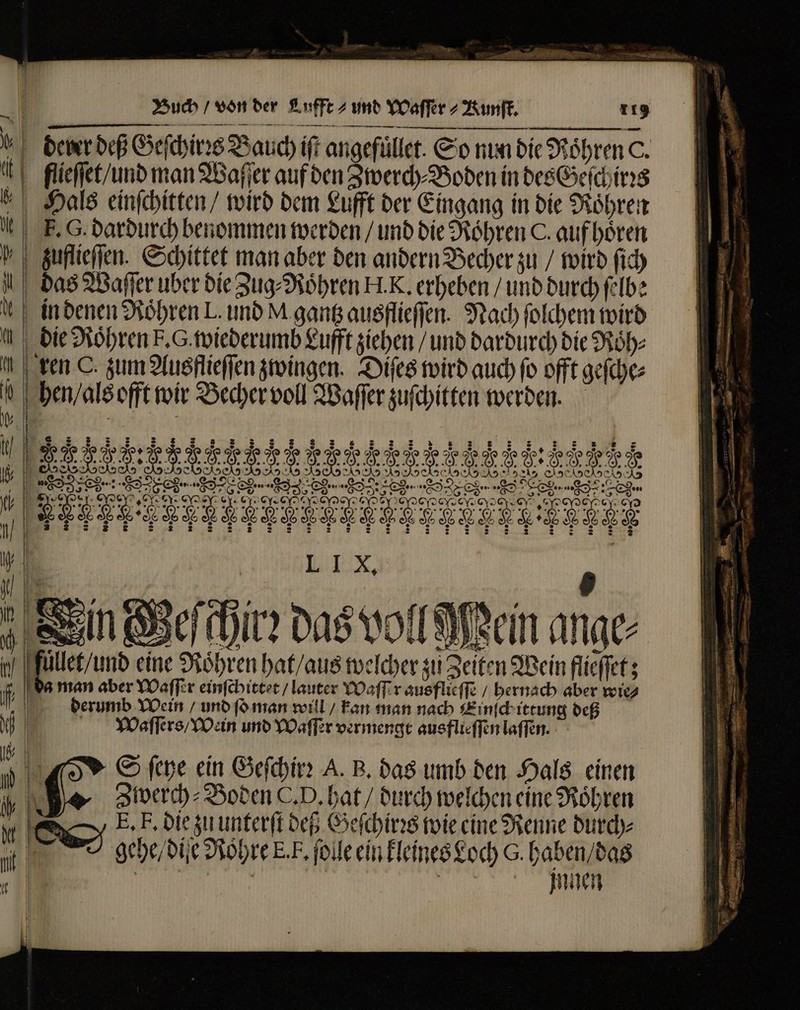 Buch / von der Lufft⸗ und Waſſer⸗Kunſt. 119
dever deß Geſchirꝛs Bauch iſt angefuͤllet. So nun die Roͤhren C.
flieſſet/und man Waſſer auf den Zwerch⸗Boden in des Geſchirꝛs
Hals einſchitten / wird dem Lufft der Eingang in die Roͤhren
F. G. dardurch benommen werden / und die Roͤhren C. auf hoͤren
zuflieſſen. Schittet man aber den andern Becher zu / wird ſich
das Waſſer uber die Zug⸗Roͤhren H.K. erheben / und durch ſelbe
in denen Roͤhren L. und M. gantz ausflieſſen. Nach ſolchem wird
die Roͤhren F. G. wiederumb Lufft ziehen / und dardurch die Roͤh⸗
ren C. zum Ausflieſſen zwingen. Diſes wird auch ſo offt geſche⸗
hen/als offt wir Becher voll Waſſer zuſchitten werden.
LIX.
Ein Geſchirꝛ das voll Wein ange⸗
fuͤllet/und eine Roͤhren hat/aus welcher zu Zeiten Wein flieſſet;
da man aber Waſſer einſchittet / lauter Waſſer ausflieſſe / hernach aber wie⸗
derumb Wein / und ſo man will / kan man nach Einſchittung deß
Waſſers/Wein und Waſſer vermengt ausflieſſen laſſen.
ES ſeye ein Geſchirꝛ A. B. das umb den Hals einen
Zwerch⸗Boden C.D. hat / durch welchen eine Roͤhren
E. F. die zu unterſt deß Geſchirꝛs wie eine Renne durch⸗
gehe/diſe Roͤhre E.F. ſolle ein kleines Loch G. haben/das
jnnen